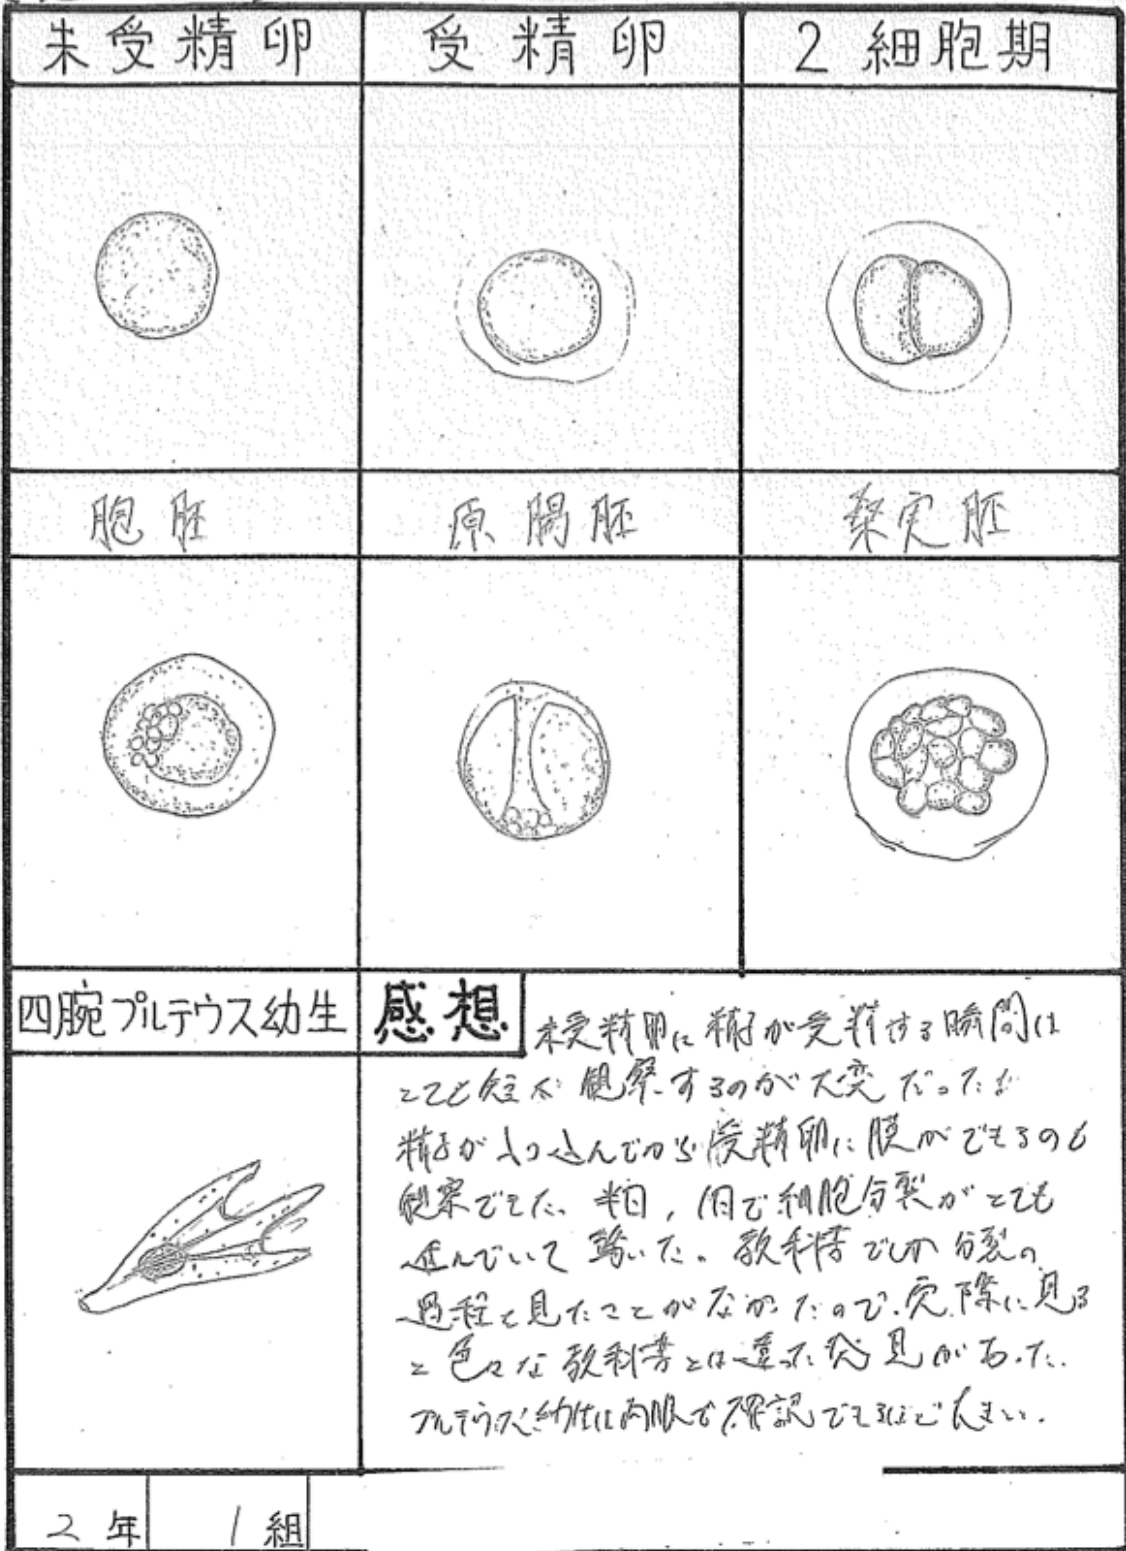 未受精卵
受精卵
2細胞期
胞胚
原腸胚
桑実胚
四腕プルテウス幼生
感想
未受精卵に精子が受精する瞬間は
とても短く観察するのが大変だった。
精子が入り込んでから受精卵に膜ができるのも
観察できた。半日、1日で細胞分裂がとても
進んでいて驚いた。教科書でしか分裂の
過程を見たことがなかったので、実際に見る
と色々な教科書とは違った発見があった。
プルテウス幼生は肉眼で確認できるほど大きい。
2年 1組